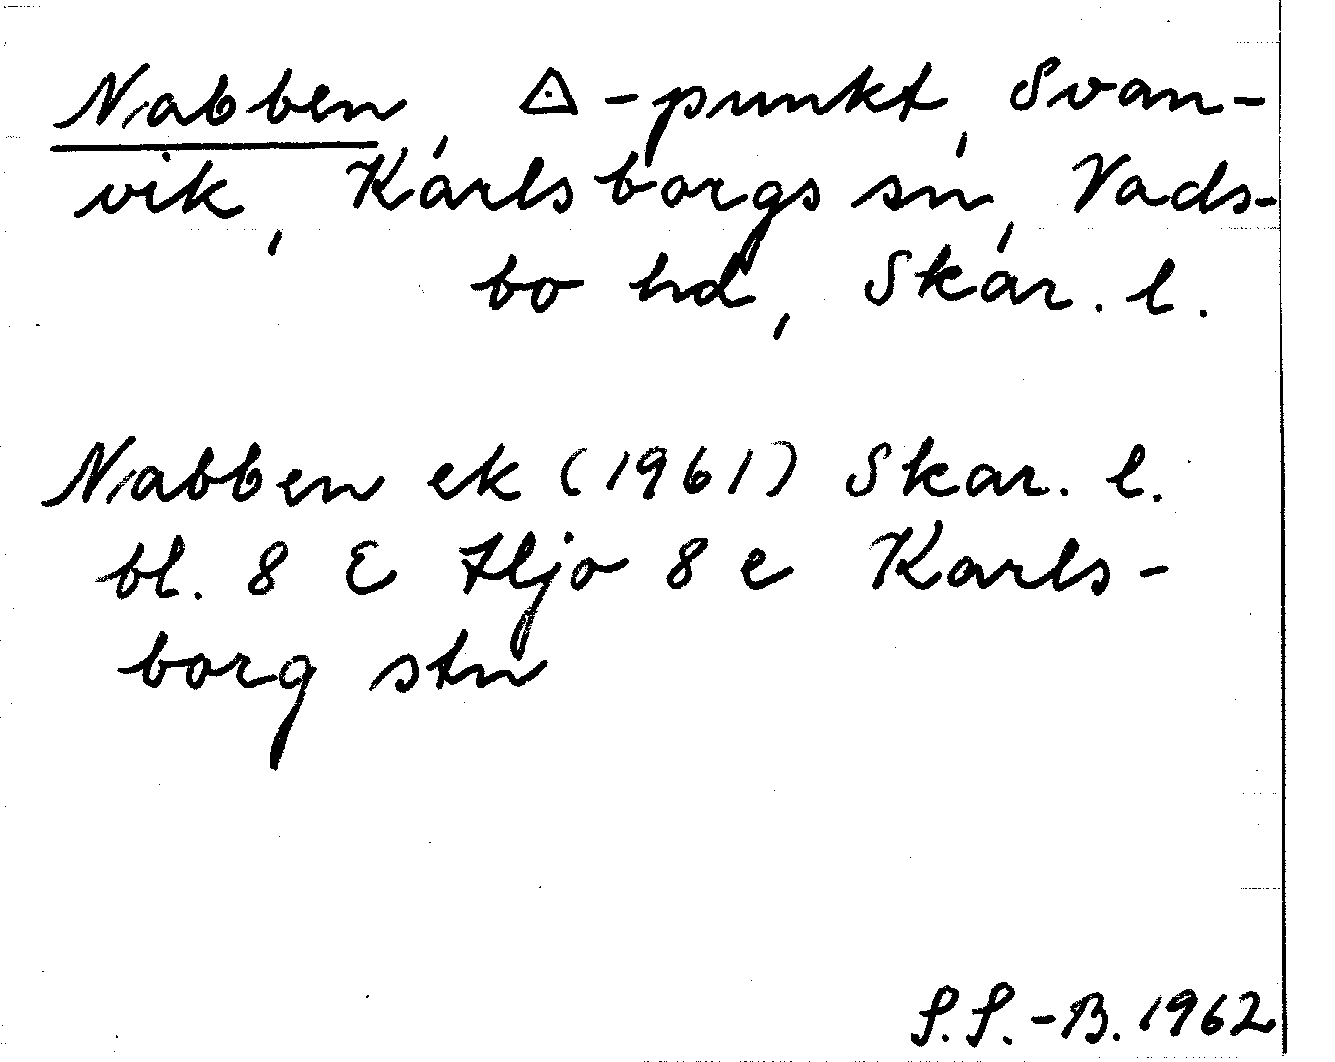 Nabben, △-punkt, Svan-
vik, Karlsborgs sn, Vads-
bo hd, Skar. l.
Nabben ek (1961) Skar. l.
bl. 8 E Hjo 8 e Karls-
borg stn
S.S.-B. 1962